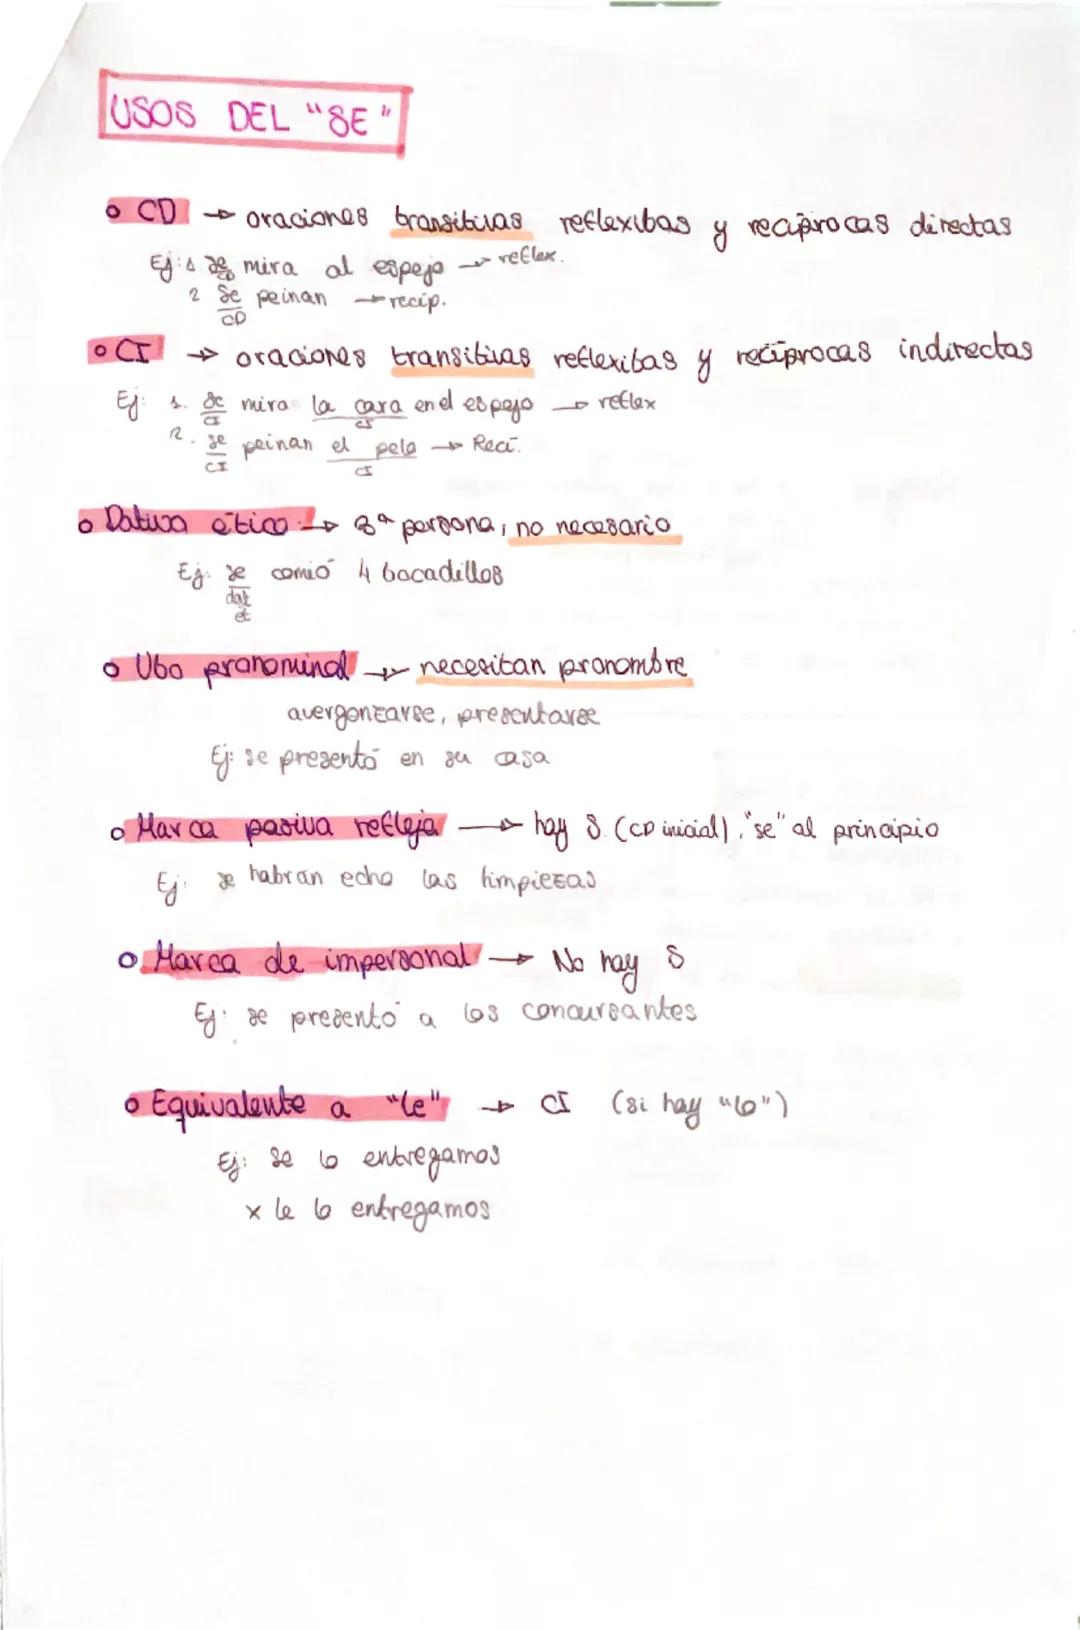 USOS DEL "SE"
o CD → oraciones transitivas reflexibas y reciprocas directas
Ej: 1 se mira al espejo → reflex.
CD
2 Se peinan → recip.
CD
o CI → oraciones transitivas reflexibas y recíprocas indirectas
Ej: 1. se mira la cara en el espejo → reflex
CI
2. se peinan el pelo → Reci.
CI
o Dativo ético → 3ª persona, no necesario
Ej. se comió 4 bocadillos
dat
et
o Vbo pronominal → necesitan pronombre
avergonzarse, presentarse
Ej: se presentó en su casa
o Marca pasiva refleja → hay S. (CD inicial), "se" al principio
Ej: se habran echo las limpiezas
o Marca de impersonal → No hay S
Ej: se presentó a los concursantes
o Equivalente a "le" → CI (si hay "lo")
Ej: se lo entregamos
x le lo entregamos